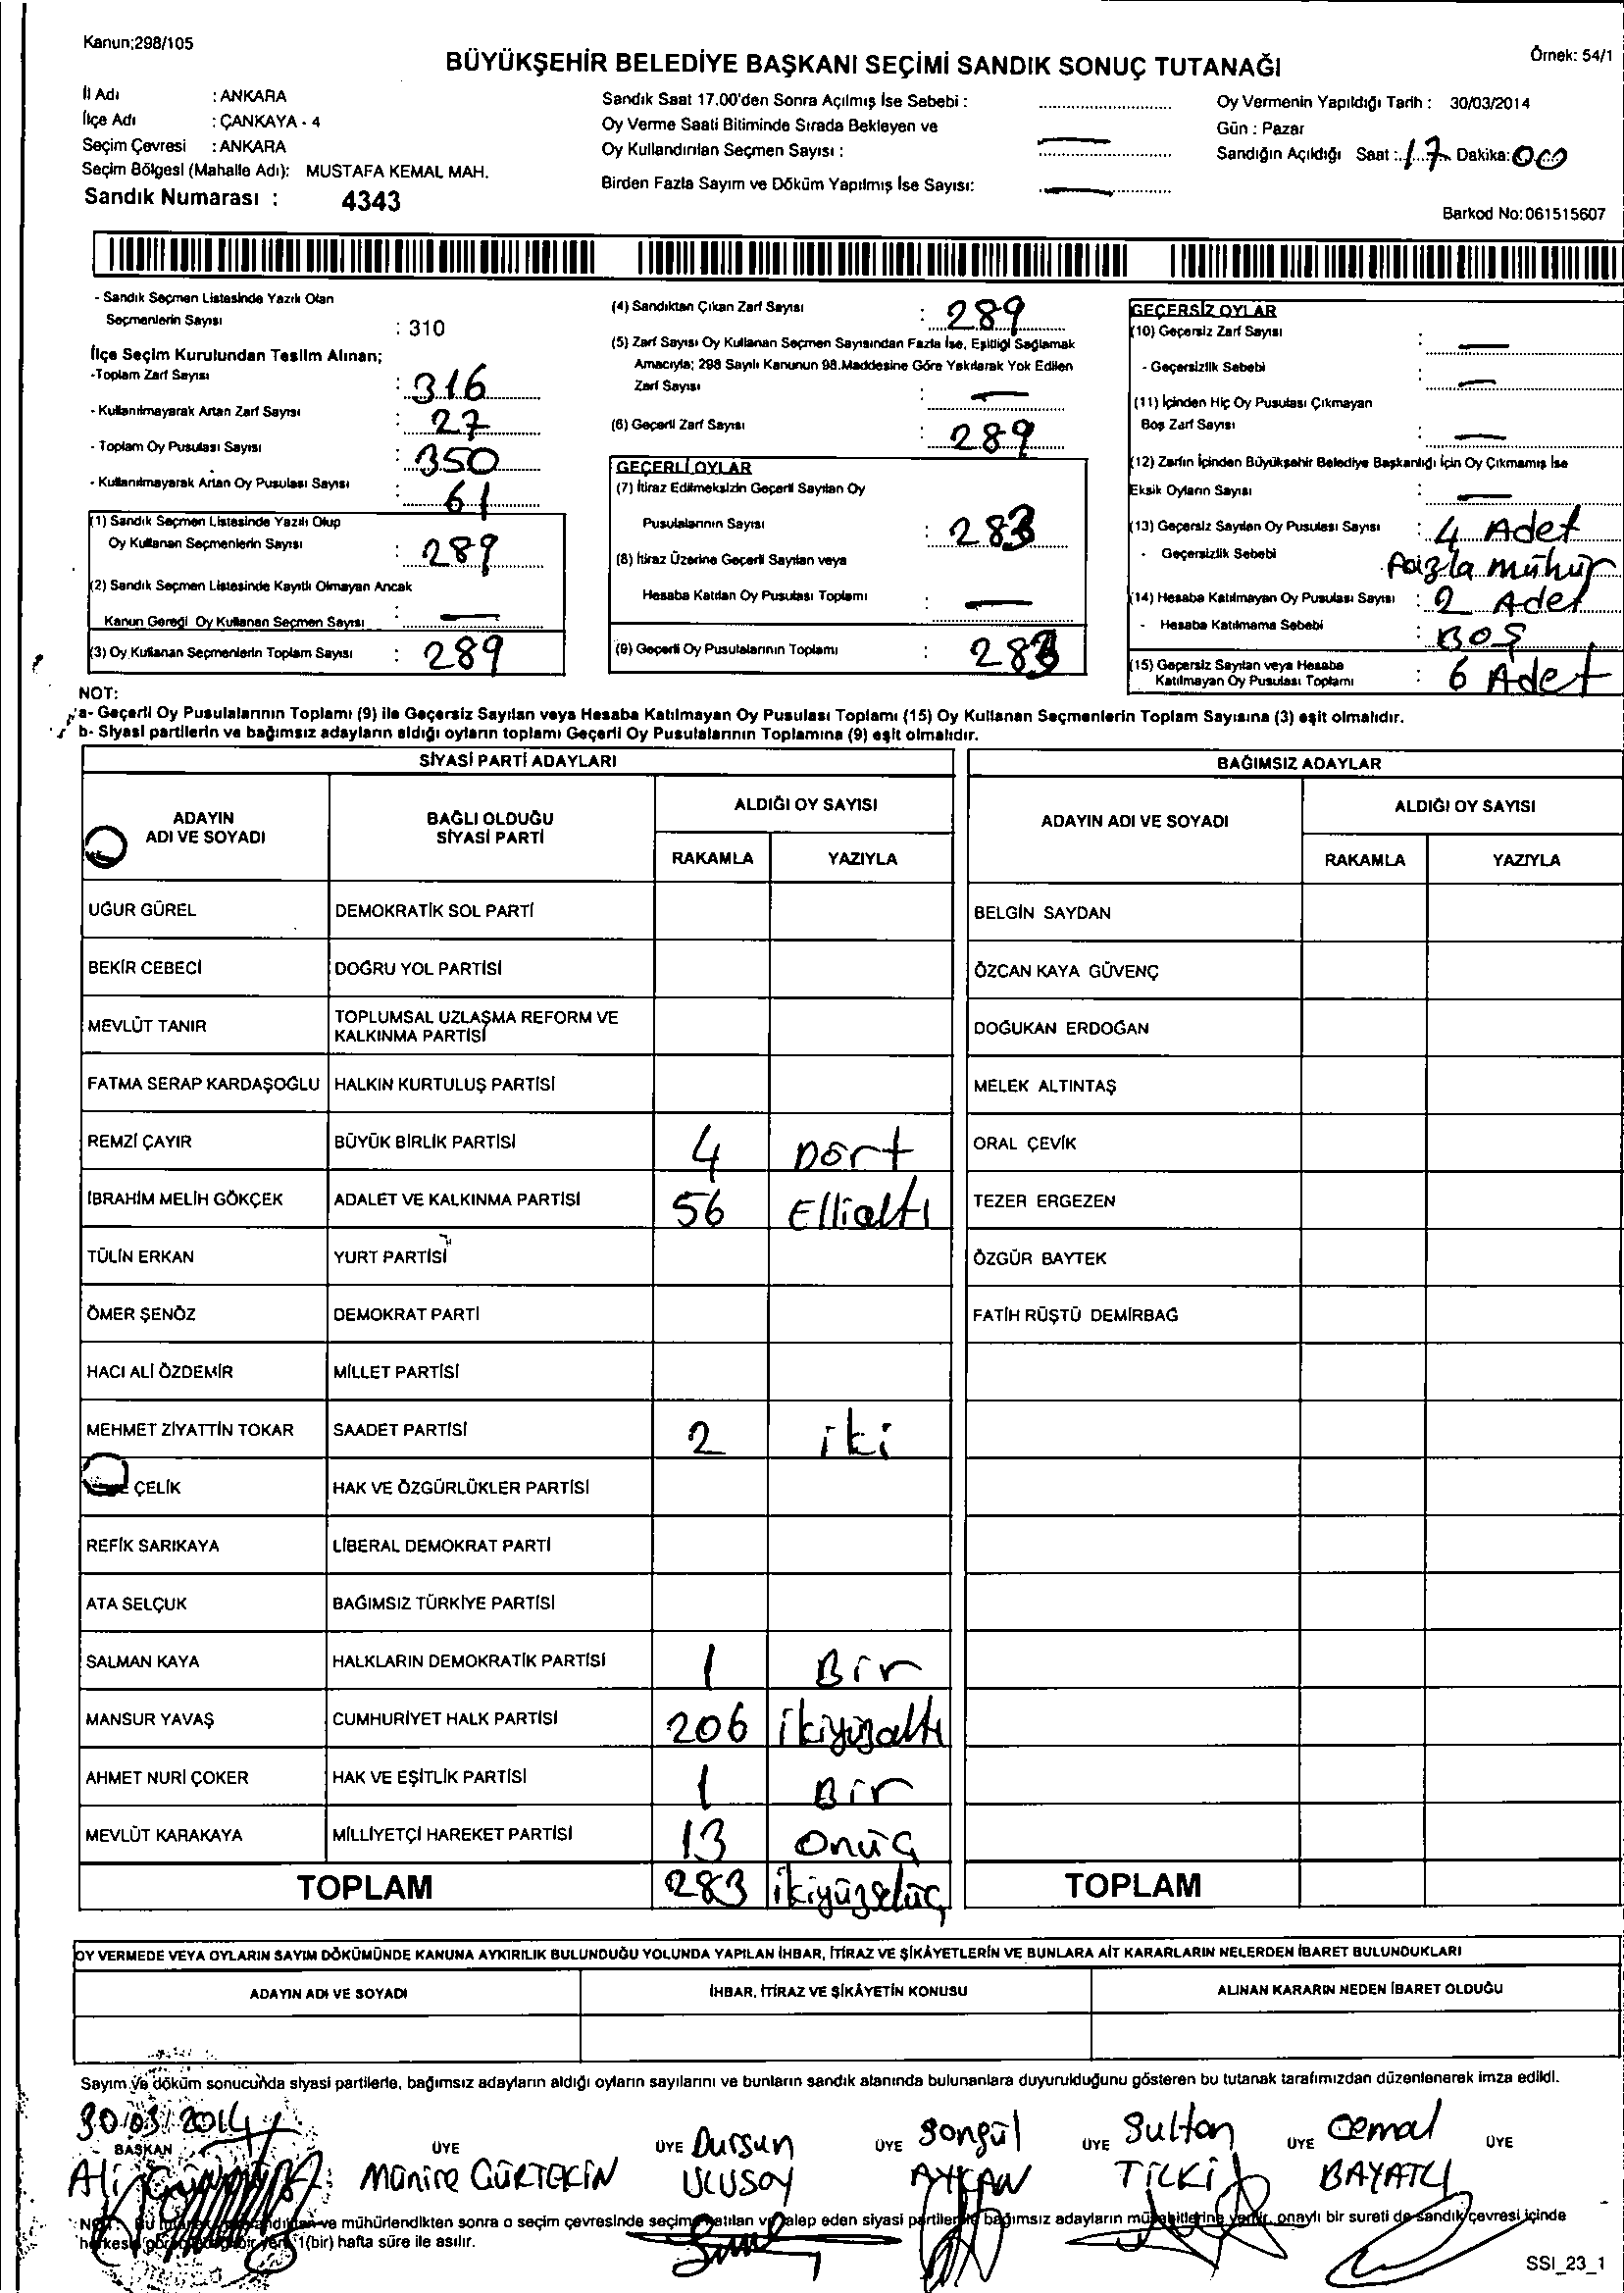 Kanun;298/105
BÜYÜKŞEHİR BELEDİYE BAŞKANI SEÇİMİ SANDIK SONUÇ TUTANAĞI
Örnek: 54/1
İl Adı : ANKARA
İlçe Adı : ÇANKAYA - 4
Seçim Çevresi : ANKARA
Seçim Bölgesi (Mahalle Adı): MUSTAFA KEMAL MAH.
Sandık Numarası : 4343
Sandık Saat 17.00'den Sonra Açılmış İse Sebebi :
Oy Verme Saati Bitiminde Sırada Bekleyen ve
Oy Kullandırılan Seçmen Sayısı : —
Birden Fazla Sayım ve Döküm Yapılmış İse Sayısı: —
Oy Vermenin Yapıldığı Tarih : 30/03/2014
Gün : Pazar
Sandığın Açıldığı Saat : 17 Dakika: 00
Barkod No: 061515607
- Sandık Seçmen Listesinde Yazılı Olan
Seçmenlerin Sayısı : 310
İlçe Seçim Kurulundan Teslim Alınan;
-Toplam Zarf Sayısı : 316
- Kullanılmayarak Artan Zarf Sayısı : 27
- Toplam Oy Pusulası Sayısı : 350
- Kullanılmayarak Artan Oy Pusulası Sayısı : 61
(1) Sandık Seçmen Listesinde Yazılı Olup
Oy Kullanan Seçmenlerin Sayısı : 289
(2) Sandık Seçmen Listesinde Kayıtlı Olmayan Ancak
Kanun Gereği Oy Kullanan Seçmen Sayısı : —
(3) Oy Kullanan Seçmenlerin Toplam Sayısı : 289
(4) Sandıktan Çıkan Zarf Sayısı : 289
(5) Zarf Sayısı Oy Kullanan Seçmen Sayısından Fazla İse, Eşitliği Sağlamak
Amacıyla; 298 Sayılı Kanunun 98.Maddesine Göre Yakılarak Yok Edilen
Zarf Sayısı : —
(6) Geçerli Zarf Sayısı : 289
GEÇERLİ OYLAR
(7) İtiraz Edilmeksizin Geçerli Sayılan Oy
Pusulalarının Sayısı : 283
(8) İtiraz Üzerine Geçerli Sayılan veya
Hesaba Katılan Oy Pusulası Toplamı : —
(9) Geçerli Oy Pusulalarının Toplamı : 283
GEÇERSİZ OYLAR
(10) Geçersiz Zarf Sayısı : —
- Geçersizlik Sebebi : —
(11) İçinden Hiç Oy Pusulası Çıkmayan
Boş Zarf Sayısı : —
(12) Zarfın İçinden Büyükşehir Belediye Başkanlığı İçin Oy Çıkmamış İse
Eksik Oyların Sayısı : —
(13) Geçersiz Sayılan Oy Pusulası Sayısı : 4 Adet
- Geçersizlik Sebebi : Fazla mühür
(14) Hesaba Katılmayan Oy Pusulası Sayısı : 2 Adet
- Hesaba Katılmama Sebebi : BOŞ
(15) Geçersiz Sayılan veya Hesaba
Katılmayan Oy Pusulası Toplamı : 6 Adet
NOT:
a- Geçerli Oy Pusulalarının Toplamı (9) ile Geçersiz Sayılan veya Hesaba Katılmayan Oy Pusulası Toplamı (15) Oy Kullanan Seçmenlerin Toplam Sayısına (3) eşit olmalıdır.
b- Siyasi partilerin ve bağımsız adayların aldığı oyların toplamı Geçerli Oy Pusulalarının Toplamına (9) eşit olmalıdır.
SİYASİ PARTİ ADAYLARI
ADAYIN ADI VE SOYADI BAĞLI OLDUĞU SİYASİ PARTİ ALDIĞI OY SAYISI
RAKAMLA YAZIYLA
UĞUR GÜREL DEMOKRATİK SOL PARTİ
BEKİR CEBECİ DOĞRU YOL PARTİSİ
MEVLÜT TANIR TOPLUMSAL UZLAŞMA REFORM VE KALKINMA PARTİSİ
FATMA SERAP KARDAŞOĞLU HALKIN KURTULUŞ PARTİSİ
REMZİ ÇAYIR BÜYÜK BİRLİK PARTİSİ 4 Dört
İBRAHİM MELİH GÖKÇEK ADALET VE KALKINMA PARTİSİ 56 Ellialtı
TÜLİN ERKAN YURT PARTİSİ
ÖMER ŞENÖZ DEMOKRAT PARTİ
HACI ALİ ÖZDEMİR MİLLET PARTİSİ
MEHMET ZİYATTİN TOKAR SAADET PARTİSİ 2 iki
ÇELİK HAK VE ÖZGÜRLÜKLER PARTİSİ
REFİK SARIKAYA LİBERAL DEMOKRAT PARTİ
ATA SELÇUK BAĞIMSIZ TÜRKİYE PARTİSİ
SALMAN KAYA HALKLARIN DEMOKRATİK PARTİSİ 1 Bir
MANSUR YAVAŞ CUMHURİYET HALK PARTİSİ 206 ikiyüzaltı
AHMET NURİ ÇOKER HAK VE EŞİTLİK PARTİSİ 1 Bir
MEVLÜT KARAKAYA MİLLİYETÇİ HAREKET PARTİSİ 13 Onüç
TOPLAM 283
BAĞIMSIZ ADAYLAR
ADAYIN ADI VE SOYADI ALDIĞI OY SAYISI
RAKAMLA YAZIYLA
BELGİN SAYDAN
ÖZCAN KAYA GÜVENÇ
DOĞUKAN ERDOĞAN
MELEK ALTINTAŞ
ORAL ÇEVİK
TEZER ERGEZEN
ÖZGÜR BAYTEK
FATİH RÜŞTÜ DEMİRBAĞ
TOPLAM
OY VERMEDE VEYA OYLARIN SAYIM DÖKÜMÜNDE KANUNA AYKIRILIK BULUNDUĞU YOLUNDA YAPILAN İHBAR, İTİRAZ VE ŞİKÂYETLERİN VE BUNLARA AİT KARARLARIN NELERDEN İBARET BULUNDUKLARI
ADAYIN ADI VE SOYADI İHBAR, İTİRAZ VE ŞİKÂYETİN KONUSU ALINAN KARARIN NEDEN İBARET OLDUĞU
Sayım ve döküm sonucunda siyasi partilerle, bağımsız adayların aldığı oyların sayılarını ve bunların sandık alanında bulunanlara duyurulduğunu gösteren bu tutanak tarafımızdan düzenlenerek imza edildi.
30/03/2014
BAŞKAN ÜYE ÜYE ÜYE ÜYE ÜYE ÜYE
Ali
Münire GÜRTEKİN
Dursun ULUSOY
Songül AYKAN
Sultan TİLKİ
Cemal BAYATLI
ve mühürlendikten sonra o seçim çevresinde seçime katılan ve talep eden siyasi partilerle bağımsız adayların müşahitlerine verilir, onaylı bir sureti de sandık çevresi içinde
1(bir) hafta süre ile asılır.
SSI_23_1